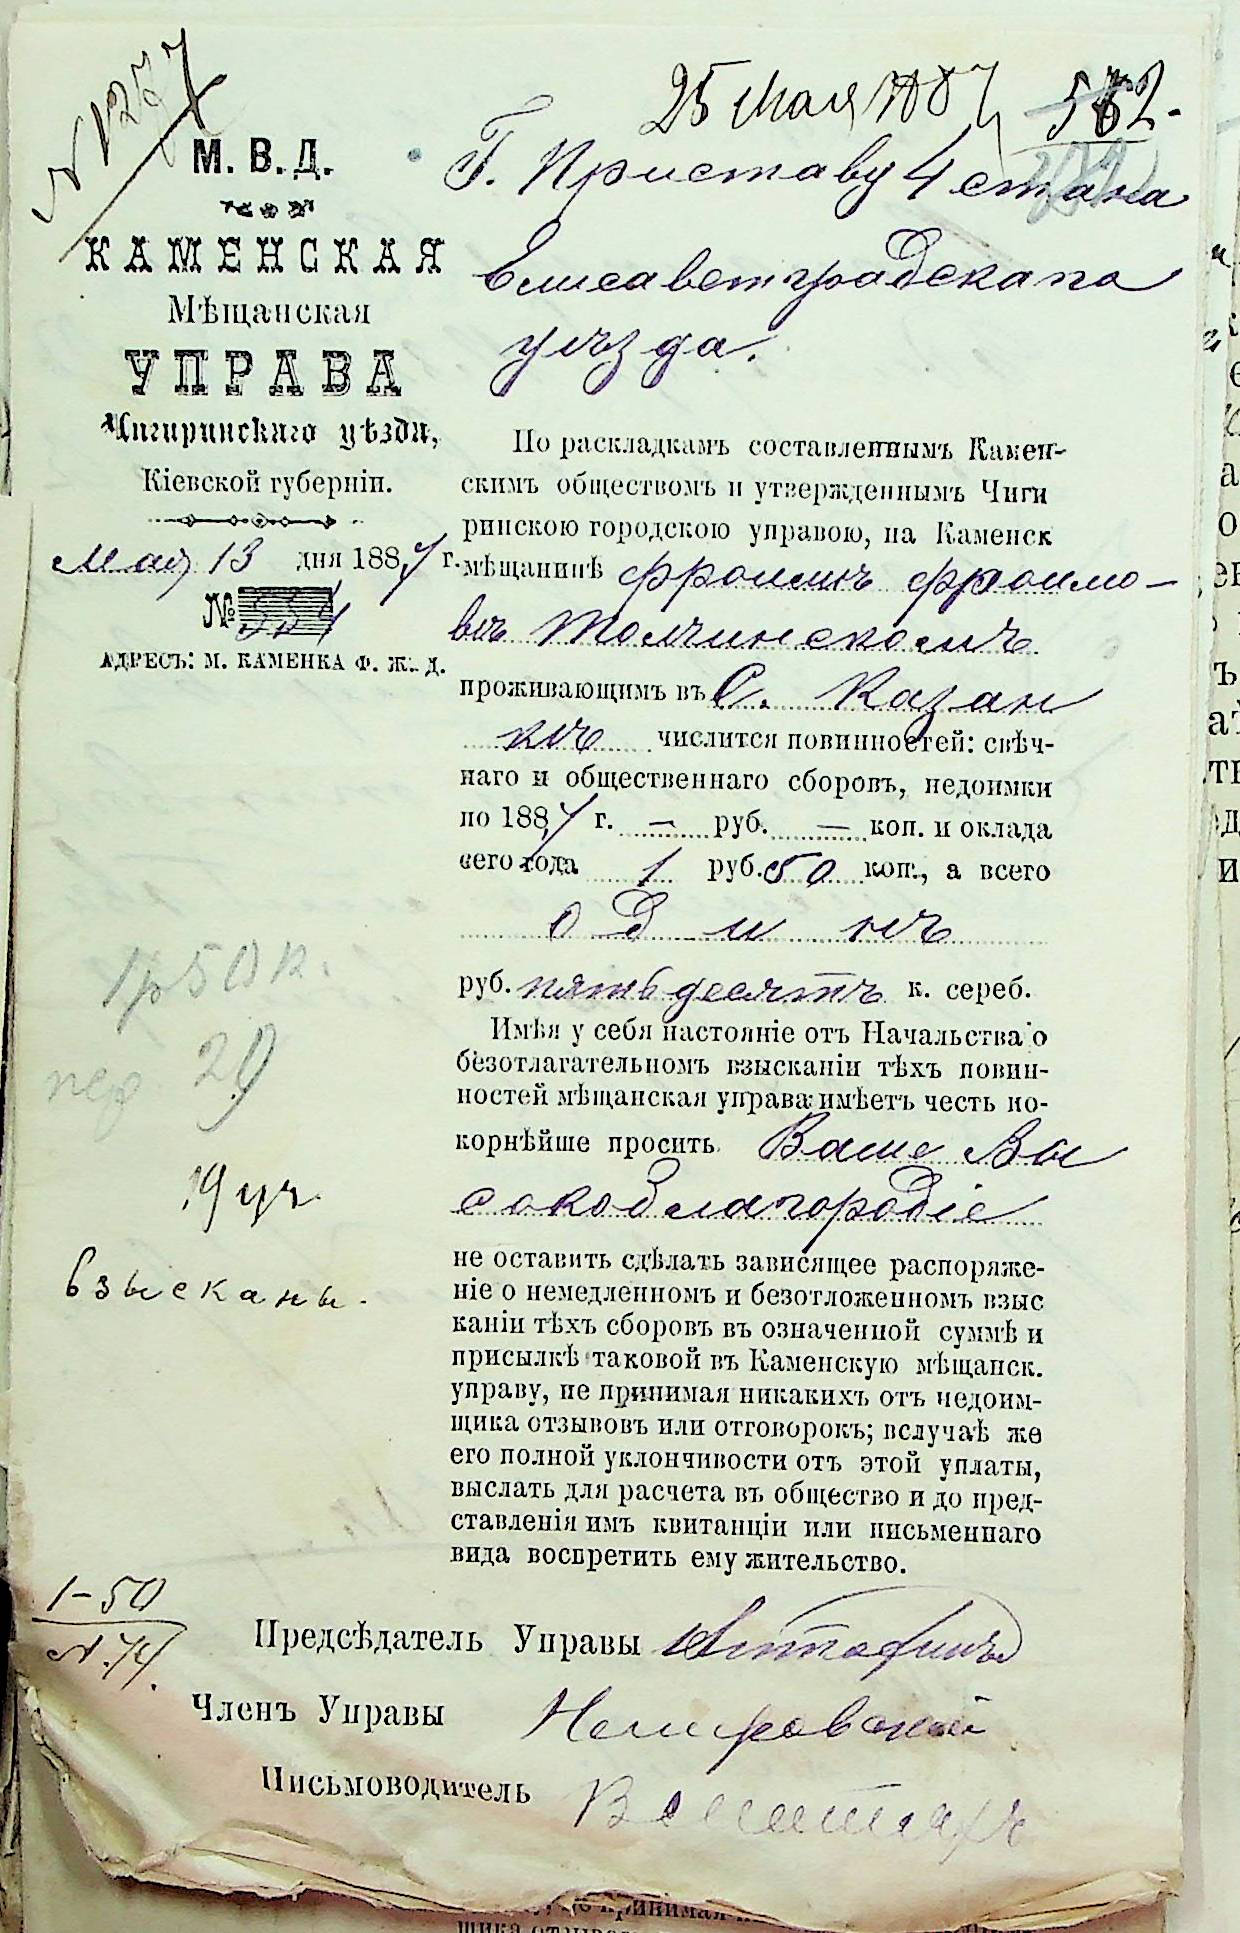 N 1257
25 Мая 1887
562.
М. В. Д.
КАМЕНСКАЯ
Мѣщанская
УПРАВА
Чигиринскаго уѣзда,
Кіевской губерніи.
Мая 13 дня 1887 г.
№ 334
АДРЕСЪ: М. КАМЕНКА Ф. Ж. Д.
Г. Приставу 4 стана
Елисаветградскаго
уѣзда.
По раскладкамъ составленнымъ Камен-
скимъ обществомъ и утвержденнымъ Чиги
ринскою городскою управою, на Каменск
мѣщанинѣ Фроимѣ Фроимо-
вѣ Толчинскомъ
проживающимъ въ С. Казан
кѣ числится повинностей: свѣч-
наго и общественнаго сборовъ, недоимки
по 1887 г. — руб. — коп. и оклада
сего года 1 руб. 50 коп., а всего
один ъ
руб. пятьдесятъ к. сереб.
Имѣя у себя настояніе отъ Начальства о
безотлагательномъ взысканіи тѣхъ повин-
ностей мѣщанская управа имѣетъ честь по-
корнѣйше просить Ваше Вы
сокоблагородіе
не оставить сдѣлать зависящее распоряже-
ніе о немедленномъ и безотложенномъ взыс
каніи тѣхъ сборовъ въ означенной суммѣ и
присылкѣ таковой въ Каменскую мѣщанск.
управу, не принимая никакихъ отъ недоим-
щика отзывовъ или отговорокъ; вслучаѣ же
его полной уклончивости отъ этой уплаты,
выслать для расчета въ общество и до пред-
ставленія имъ квитанціи или письменнаго
вида воспретить ему жительство.
1р 50 к.
пер 29
19 уч.
взысканы.
1-50
N. 74.
Предсѣдатель Управы
Членъ Управы Немировскій
Письмоводитель